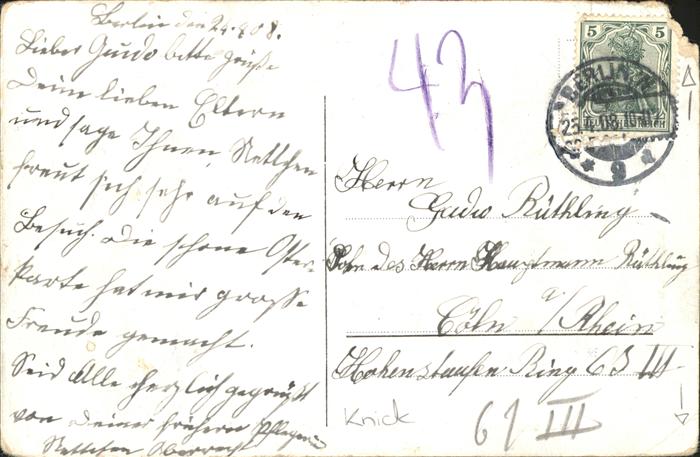 Berlin den 24.4.08.
Lieber Guido bitte grüße
Deine lieben Eltern
und sage Ihnen, Nettchen
freut sich sehr auf den
Besuch. Die schöne Oster-
karte hat mir grosse
Freude gemacht.
Seid Alle herzlich gegrüßt
von Deiner früheren Pflegerin
Nettchen
43
5 5
BERLIN
DEUTSCHES REICH
9
Herrn
Guido Rüthling
Sohn des Herrn Hauptmann Rüthling
Cöln a/Rhein
Hohenstaufen Ring 63 III
Knick
61 III